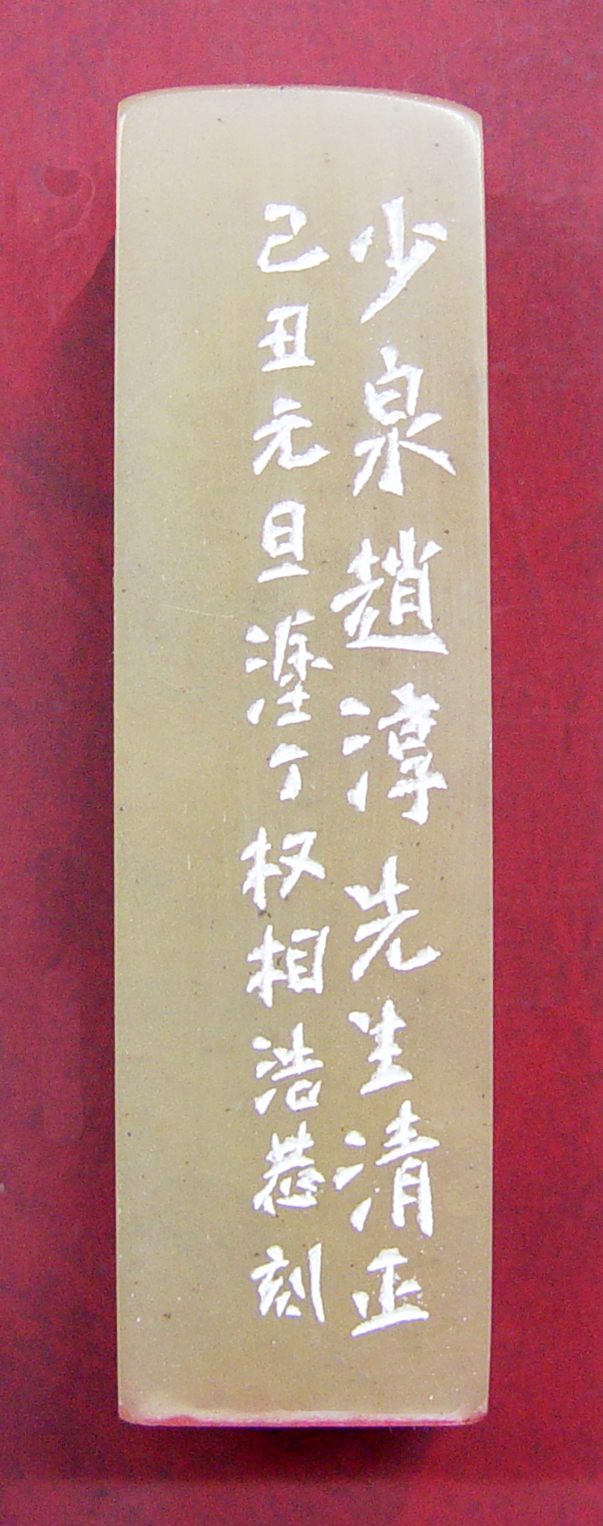 少泉趙淳先生清正
己丑元旦瀅丁权相浩恭刻